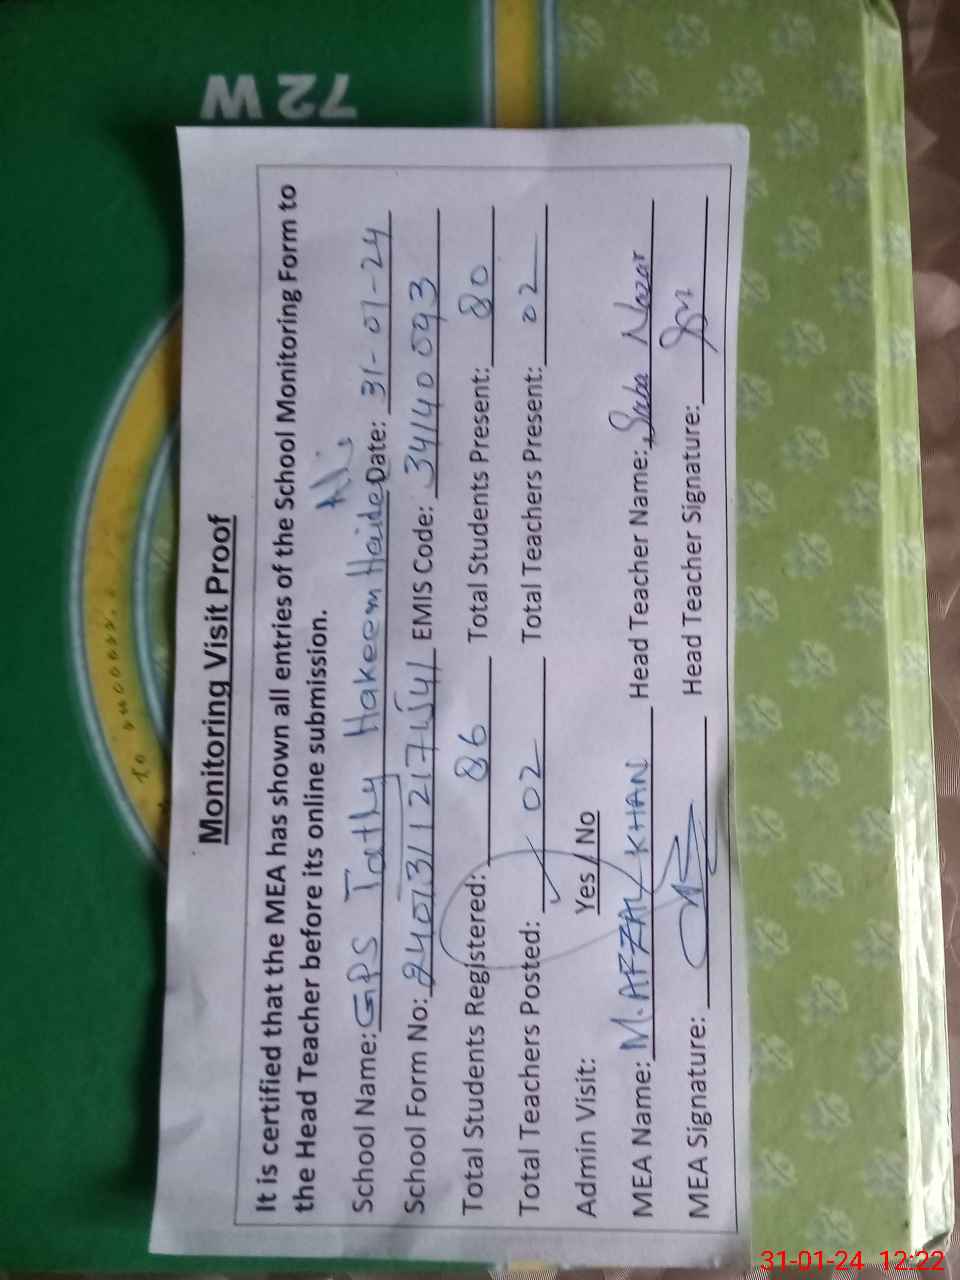 72 W
To success...
Monitoring Visit Proof
It is certified that the MEA has shown all entries of the School Monitoring Form to
the Head Teacher before its online submission.
School Name: GPS Tathy Hakeem Haider Ali Date: 31-01-24
School Form No: EMIS Code: 34140093
Total Students Registered: 86 Total Students Present: 80
Total Teachers Posted: 02 Total Teachers Present: 02
Admin Visit: Yes / No
MEA Name: M. AFZAL KHAN Head Teacher Name: Saba Nazar
MEA Signature: Head Teacher Signature:
31-01-24 12:22